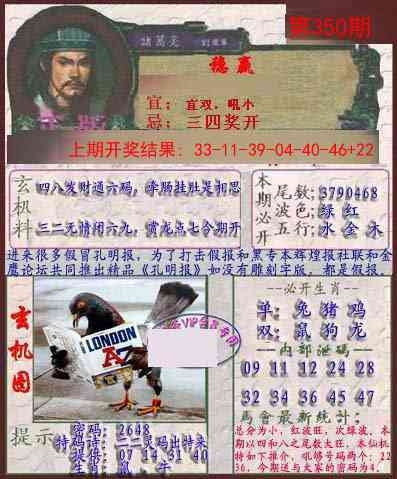 第350期
諸葛亮
稳赢
宜：宜双，吼小
忌：三四奖开
上期开奖结果：33-11-39-04-40-46+22
玄机料
四八发财通六码，牵肠挂肚是相思
三二无情闭六九，赏龙点七今期开
本期必开
尾数：3790468
波色：绿 红
五行：水 金 木
进来很多假冒孔明报，为了打击假报和黑专本辉煌报社联和金
鹰论坛共同推出精品《孔明报》如没有雕刻字版，都是假报。
玄机图
LONDON
A
--必开生肖--
单：兔 猪 鸡
双：鼠 狗 龙
--内部泄码--
09 11 12 24 28
32 34 36 45 47
馬會最新统计：
总分为小，红波旺，次绿波，本
期以四和八之尾数大旺，本仙机
特如下推介，吼够号码两个：22
36，今期送与大家的密码为4.
提示
密码：2648
特码诗：二二灵码出特来
提供：07 14 31 40
生肖：鼠，牛